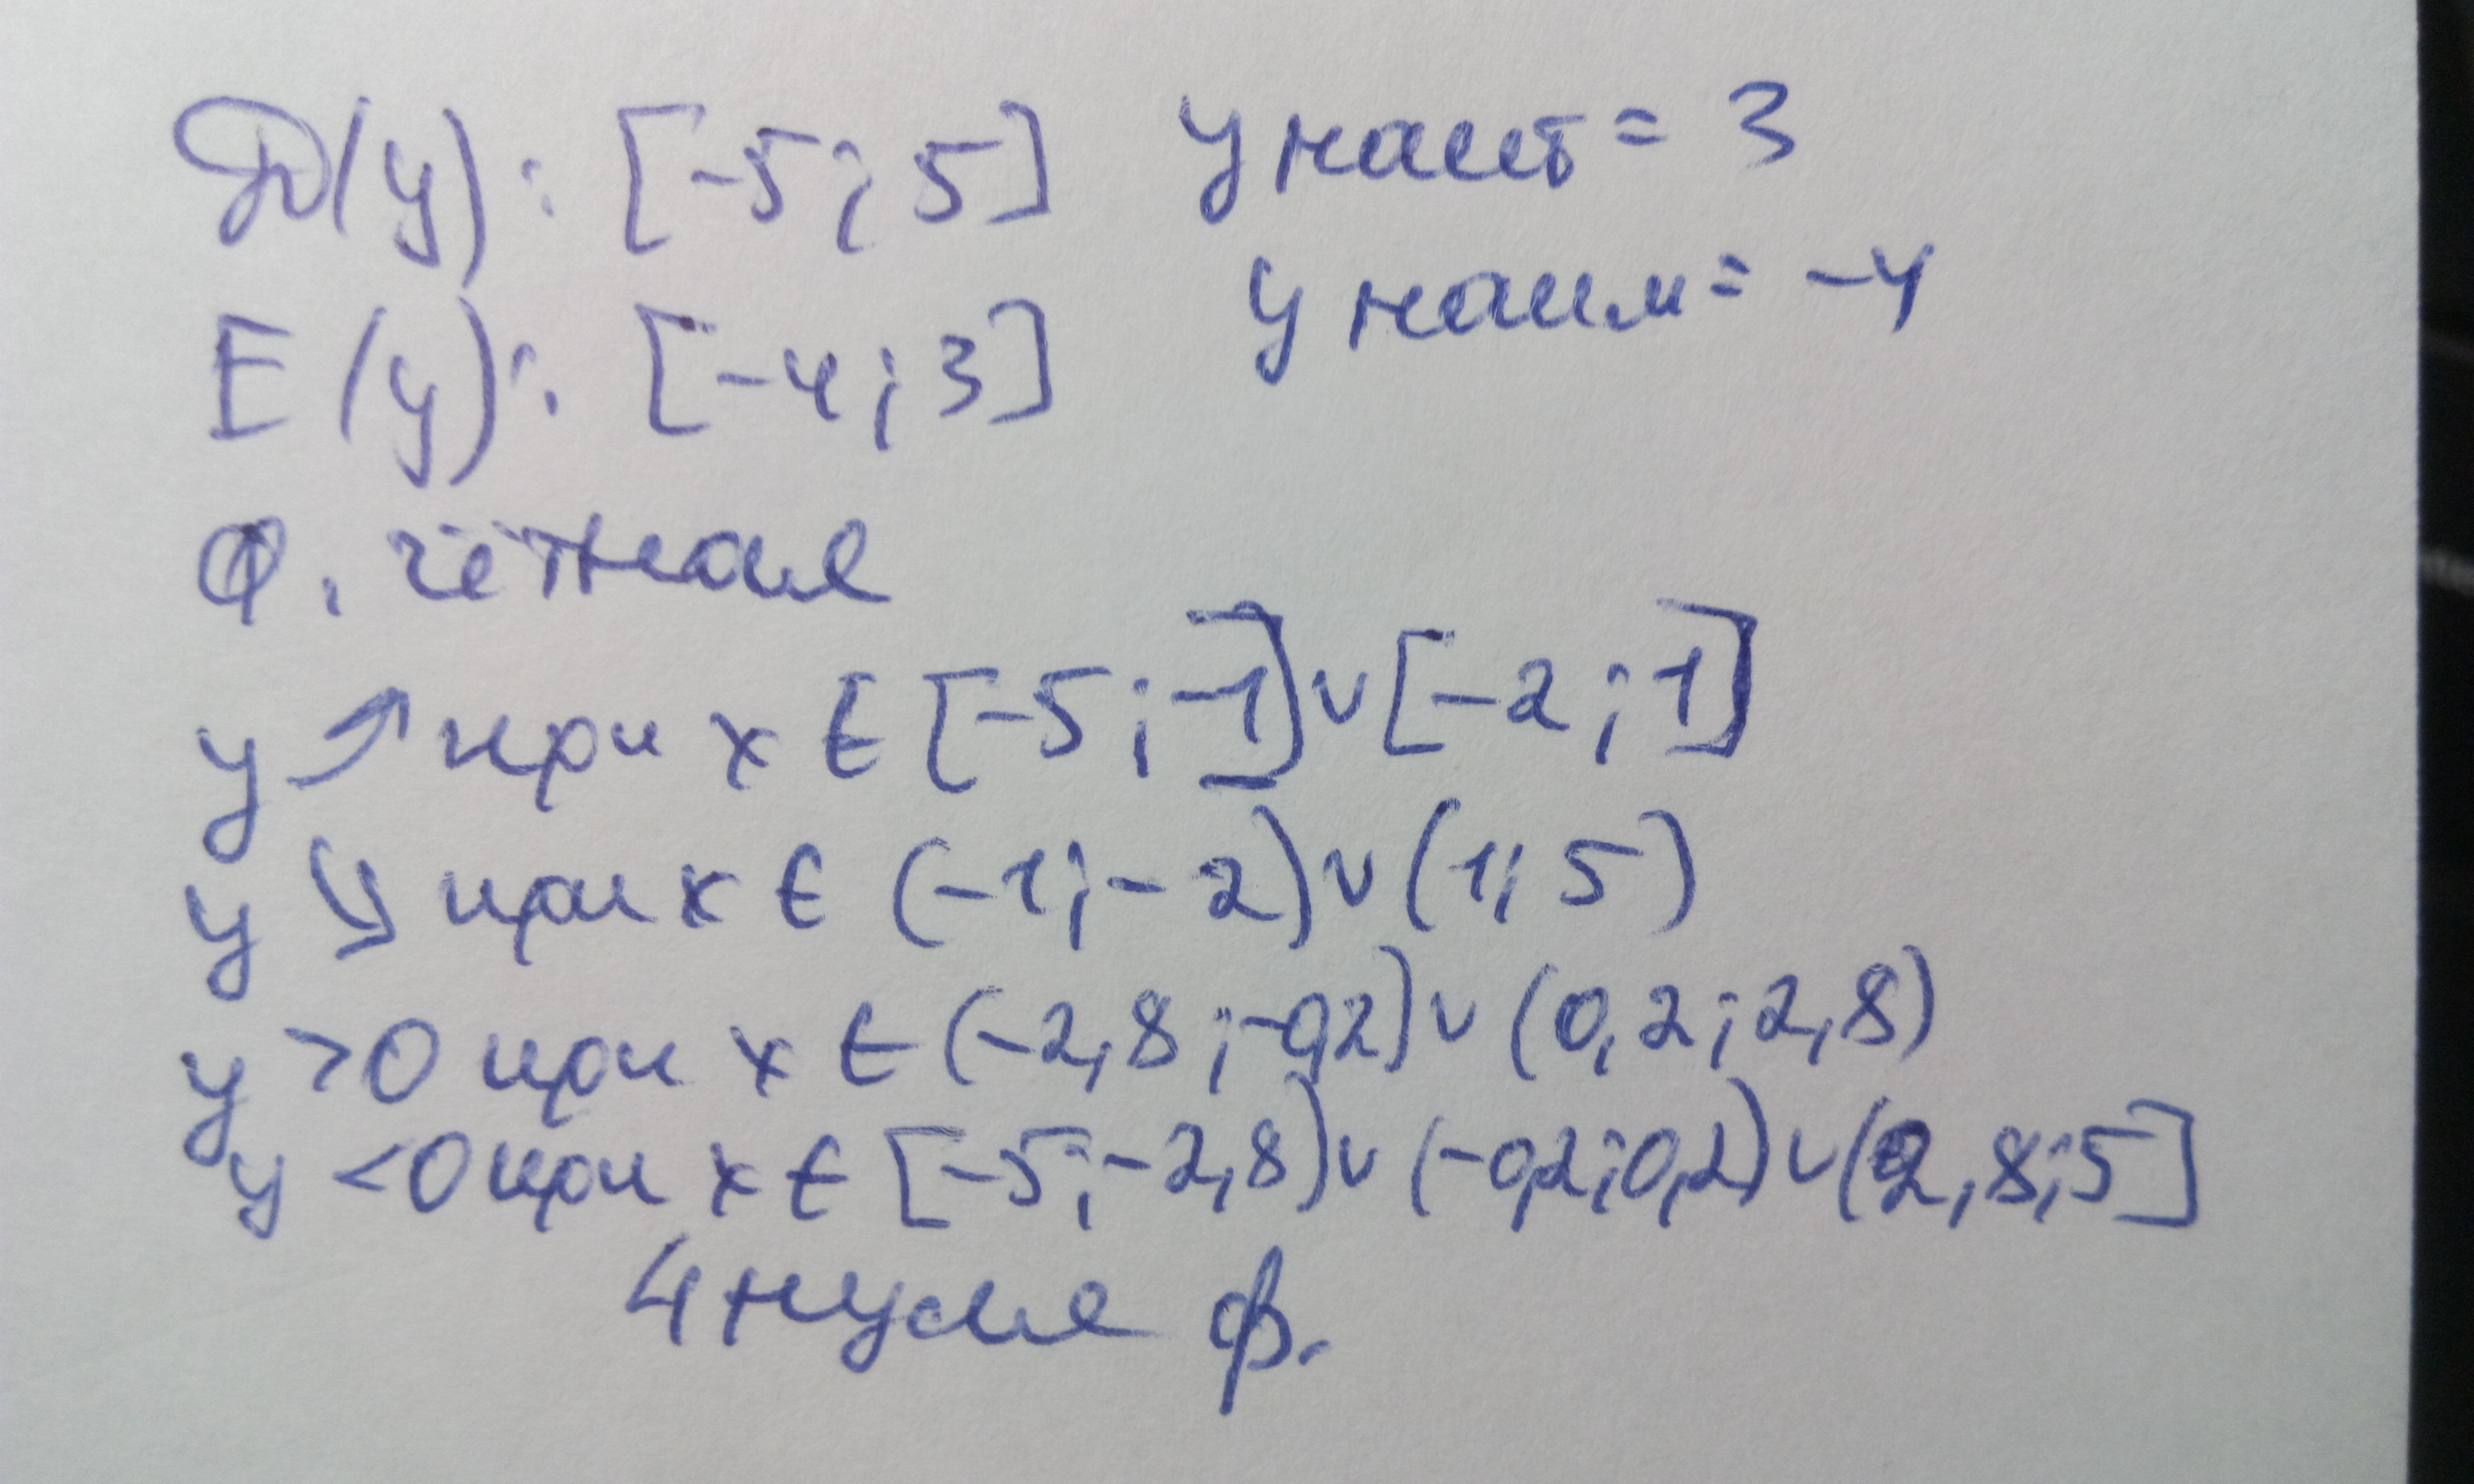 D(y): [-5; 5] y наиб = 3
y наим = -4
E(y): [-4; 3]
Ф. чётная
y ↗ при x ∈ [-5; -1] ∪ [-2; 1]
y ↘ при x ∈ (-1; -2) ∪ (1; 5)
y >0 при x ∈ (-2,8; -0,2) ∪ (0,2; 2,8)
y <0 при x ∈ [-5; -2,8) ∪ (-0,2; 0,2) ∪ (2,8; 5]
4 нуля ф.